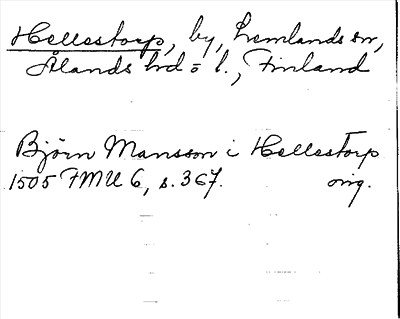 Hellestorp, by, Lemlands sn,
Ålands hd o l., Finland
Björn Mansson i Hellestorp
1505 FMU 6, s. 367. orig.